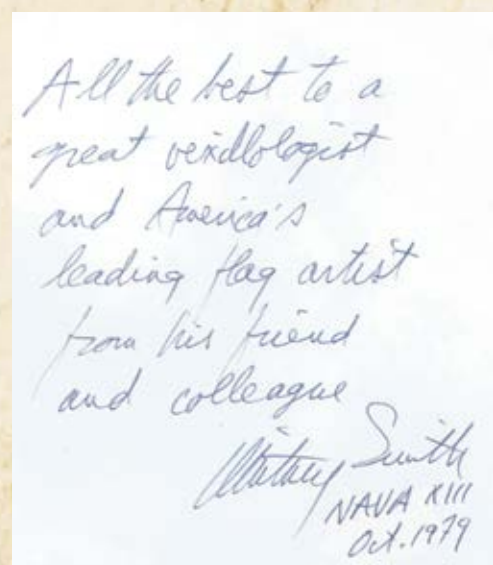 All the best to a
great vexillologist
and America's
leading flag artist
from his friend
and colleague
Whitney Smith
NAVA XIII
Oct. 1979